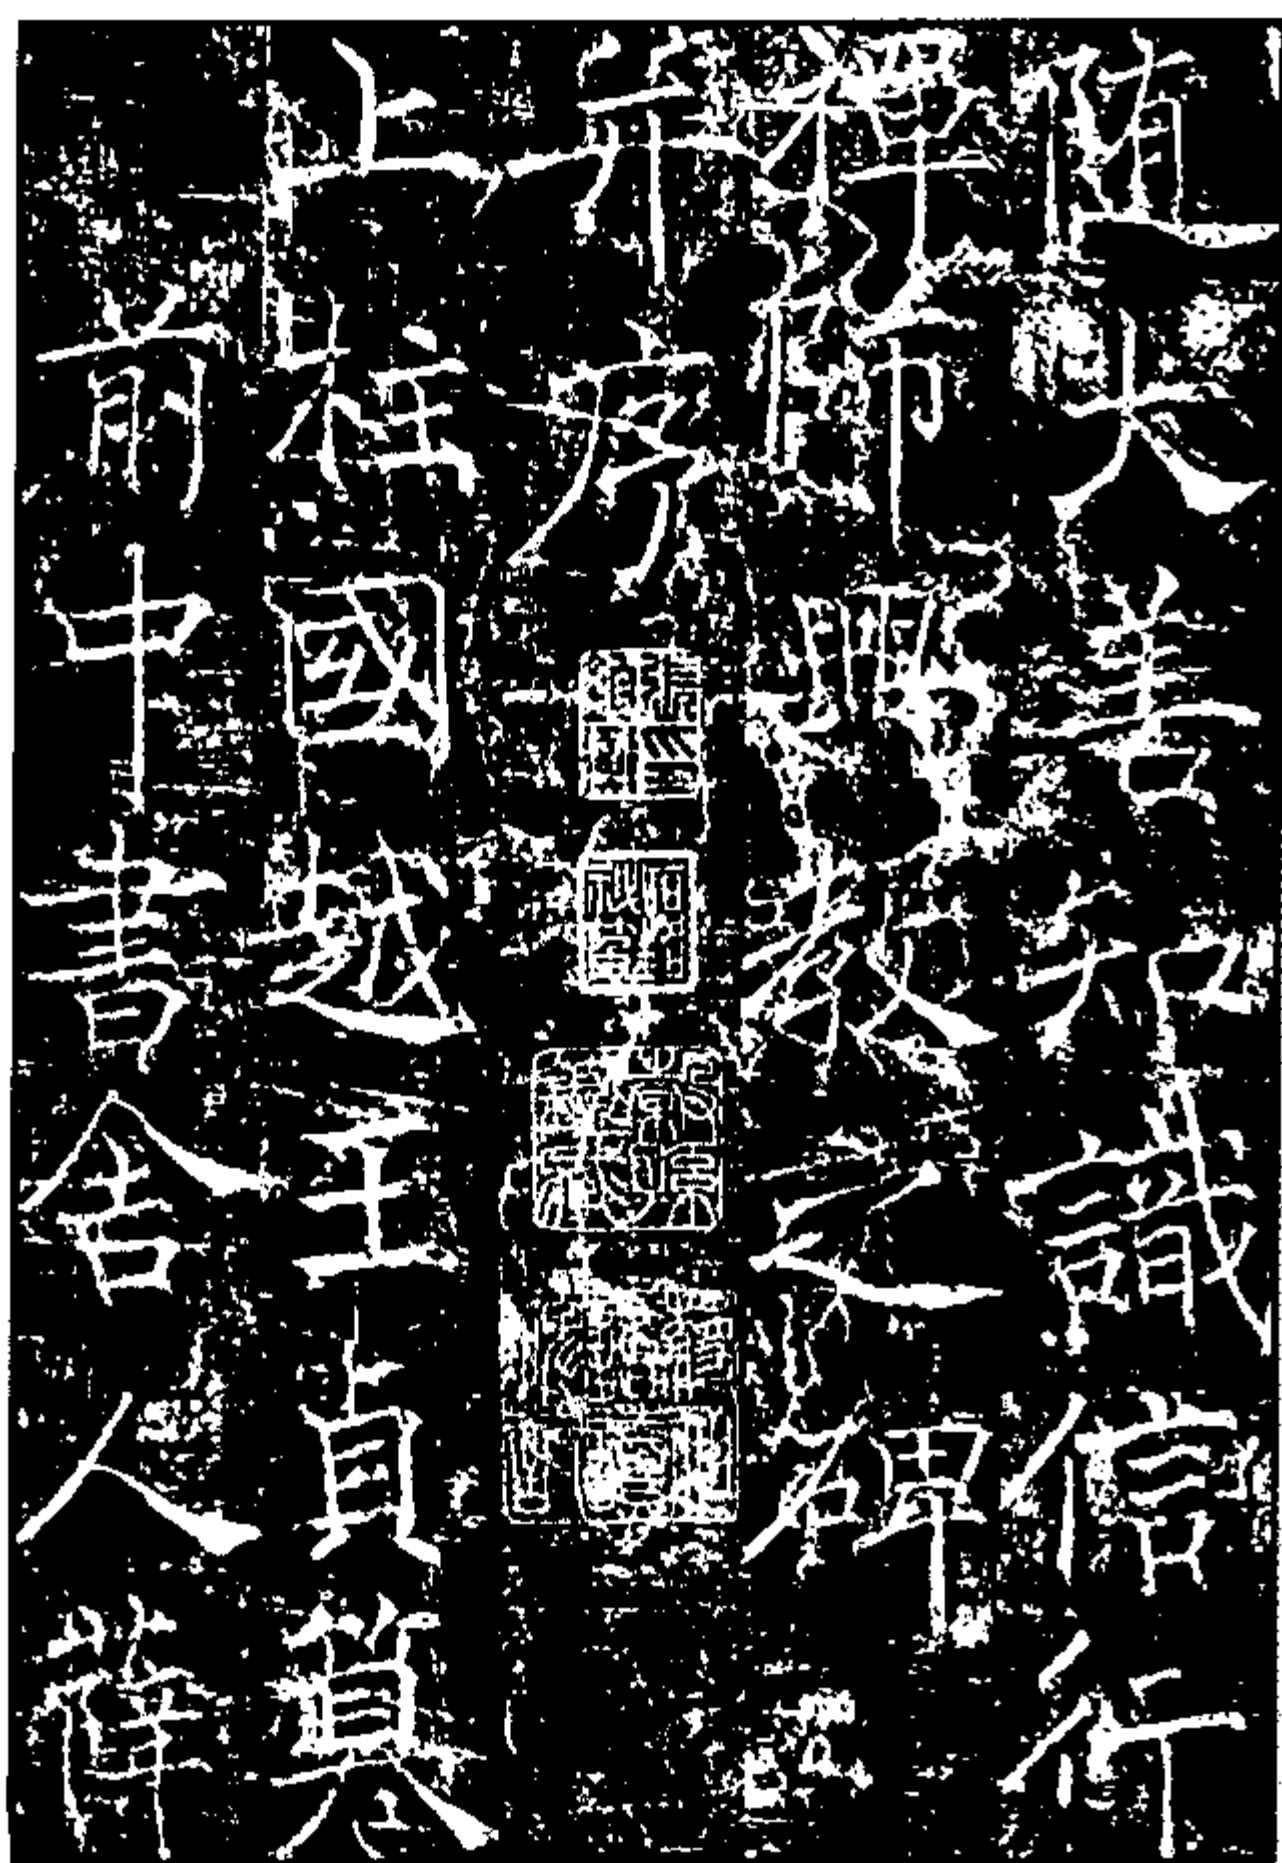 随大善知識信行
禪師興教之碑
并序
上柱國越王貞篹
前中書舍人薛